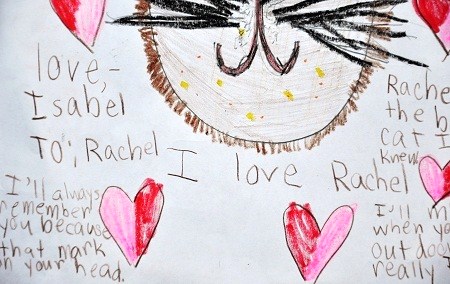 love,-
Isabel
To:, Rachel
I love Rachel
I'll always
remember
you because
that mark
on your head.
the b
cat I
knew
I'll m
when yo
out doo
really